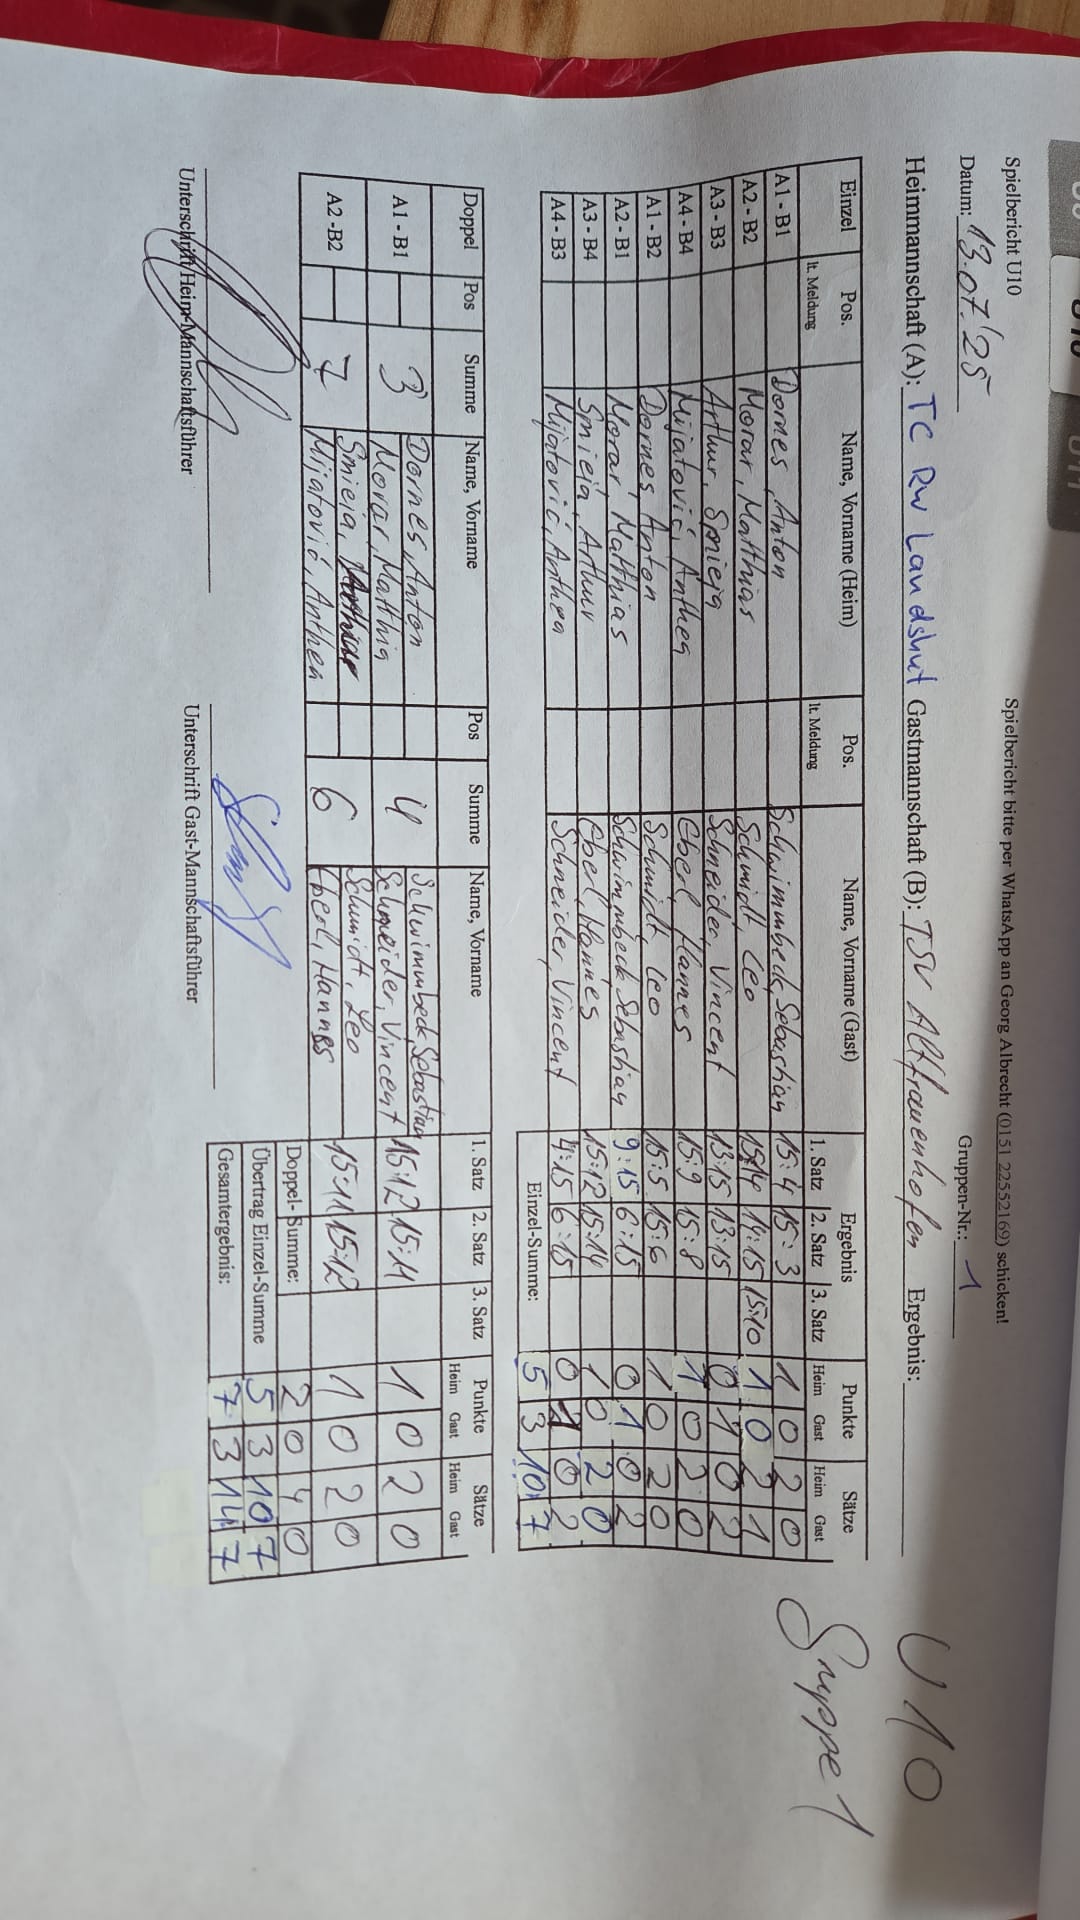 Spielbericht U10
Spielbericht bitte per WhatsApp an Georg Albrecht (0151 22552169) schicken!
Datum: 13.07.'25
Gruppen-Nr.: 1
U 10
Heimmannschaft (A): TC RW Landshut Gastmannschaft (B): TSV Altfrauenhofen Ergebnis:
Gruppe 1
Einzel Pos. lt. Meldung Name, Vorname (Heim) Pos. lt. Meldung Name, Vorname (Gast) Ergebnis 1. Satz 2. Satz 3. Satz Punkte Heim Gast Sätze Heim Gast
A1 - B1 Dornes, Anton Schwimmbeck, Sebastian 15:4 15:3 1 0 2 0
A2 - B2 Morar, Matthias Schmidt, Leo 15:14 14:15 15:10 1 0 2 1
A3 - B3 Arthur, Smieja Schneider, Vincent 13:15 13:15 0 1 0 2
A4 - B4 Mijatović, Anthea Eberl, Hannes 15:9 15:8 1 0 2 0
A1 - B2 Dornes, Anton Schmidt, Leo 15:5 15:6 1 0 2 0
A2 - B1 Morar, Matthias Schwimmbeck Sebastian 9:15 6:15 0 1 0 2
A3 - B4 Smieja, Arthur Eberl, Hannes 15:12 15:14 1 0 2 0
A4 - B3 Mijatović, Anthea Schneider, Vincent 4:15 6:15 0 1 0 2
Einzel-Summe: 5 3 10 7
Doppel Pos Summe Name, Vorname Pos Summe Name, Vorname 1. Satz 2. Satz 3. Satz Punkte Heim Gast Sätze Heim Gast
A1 - B1 3 Dornes, Anton 4 Schwimmbeck, Sebastian 15:12 15:11 1 0 2 0
Morar, Matthia Schneider, Vincent
A2 - B2 7 Smieja, 6 Schmidt, Leo 15:11 15:12 1 0 2 0
Mijatović, Anthea Eberl, Hannes
Doppel- Summe: 2 0 4 0
Übertrag Einzel-Summe 5 3 10 7
Gesamtergebnis: 7 3 14 7
Unterschrift Heim-Mannschaftsführer
Unterschrift Gast-Mannschaftsführer